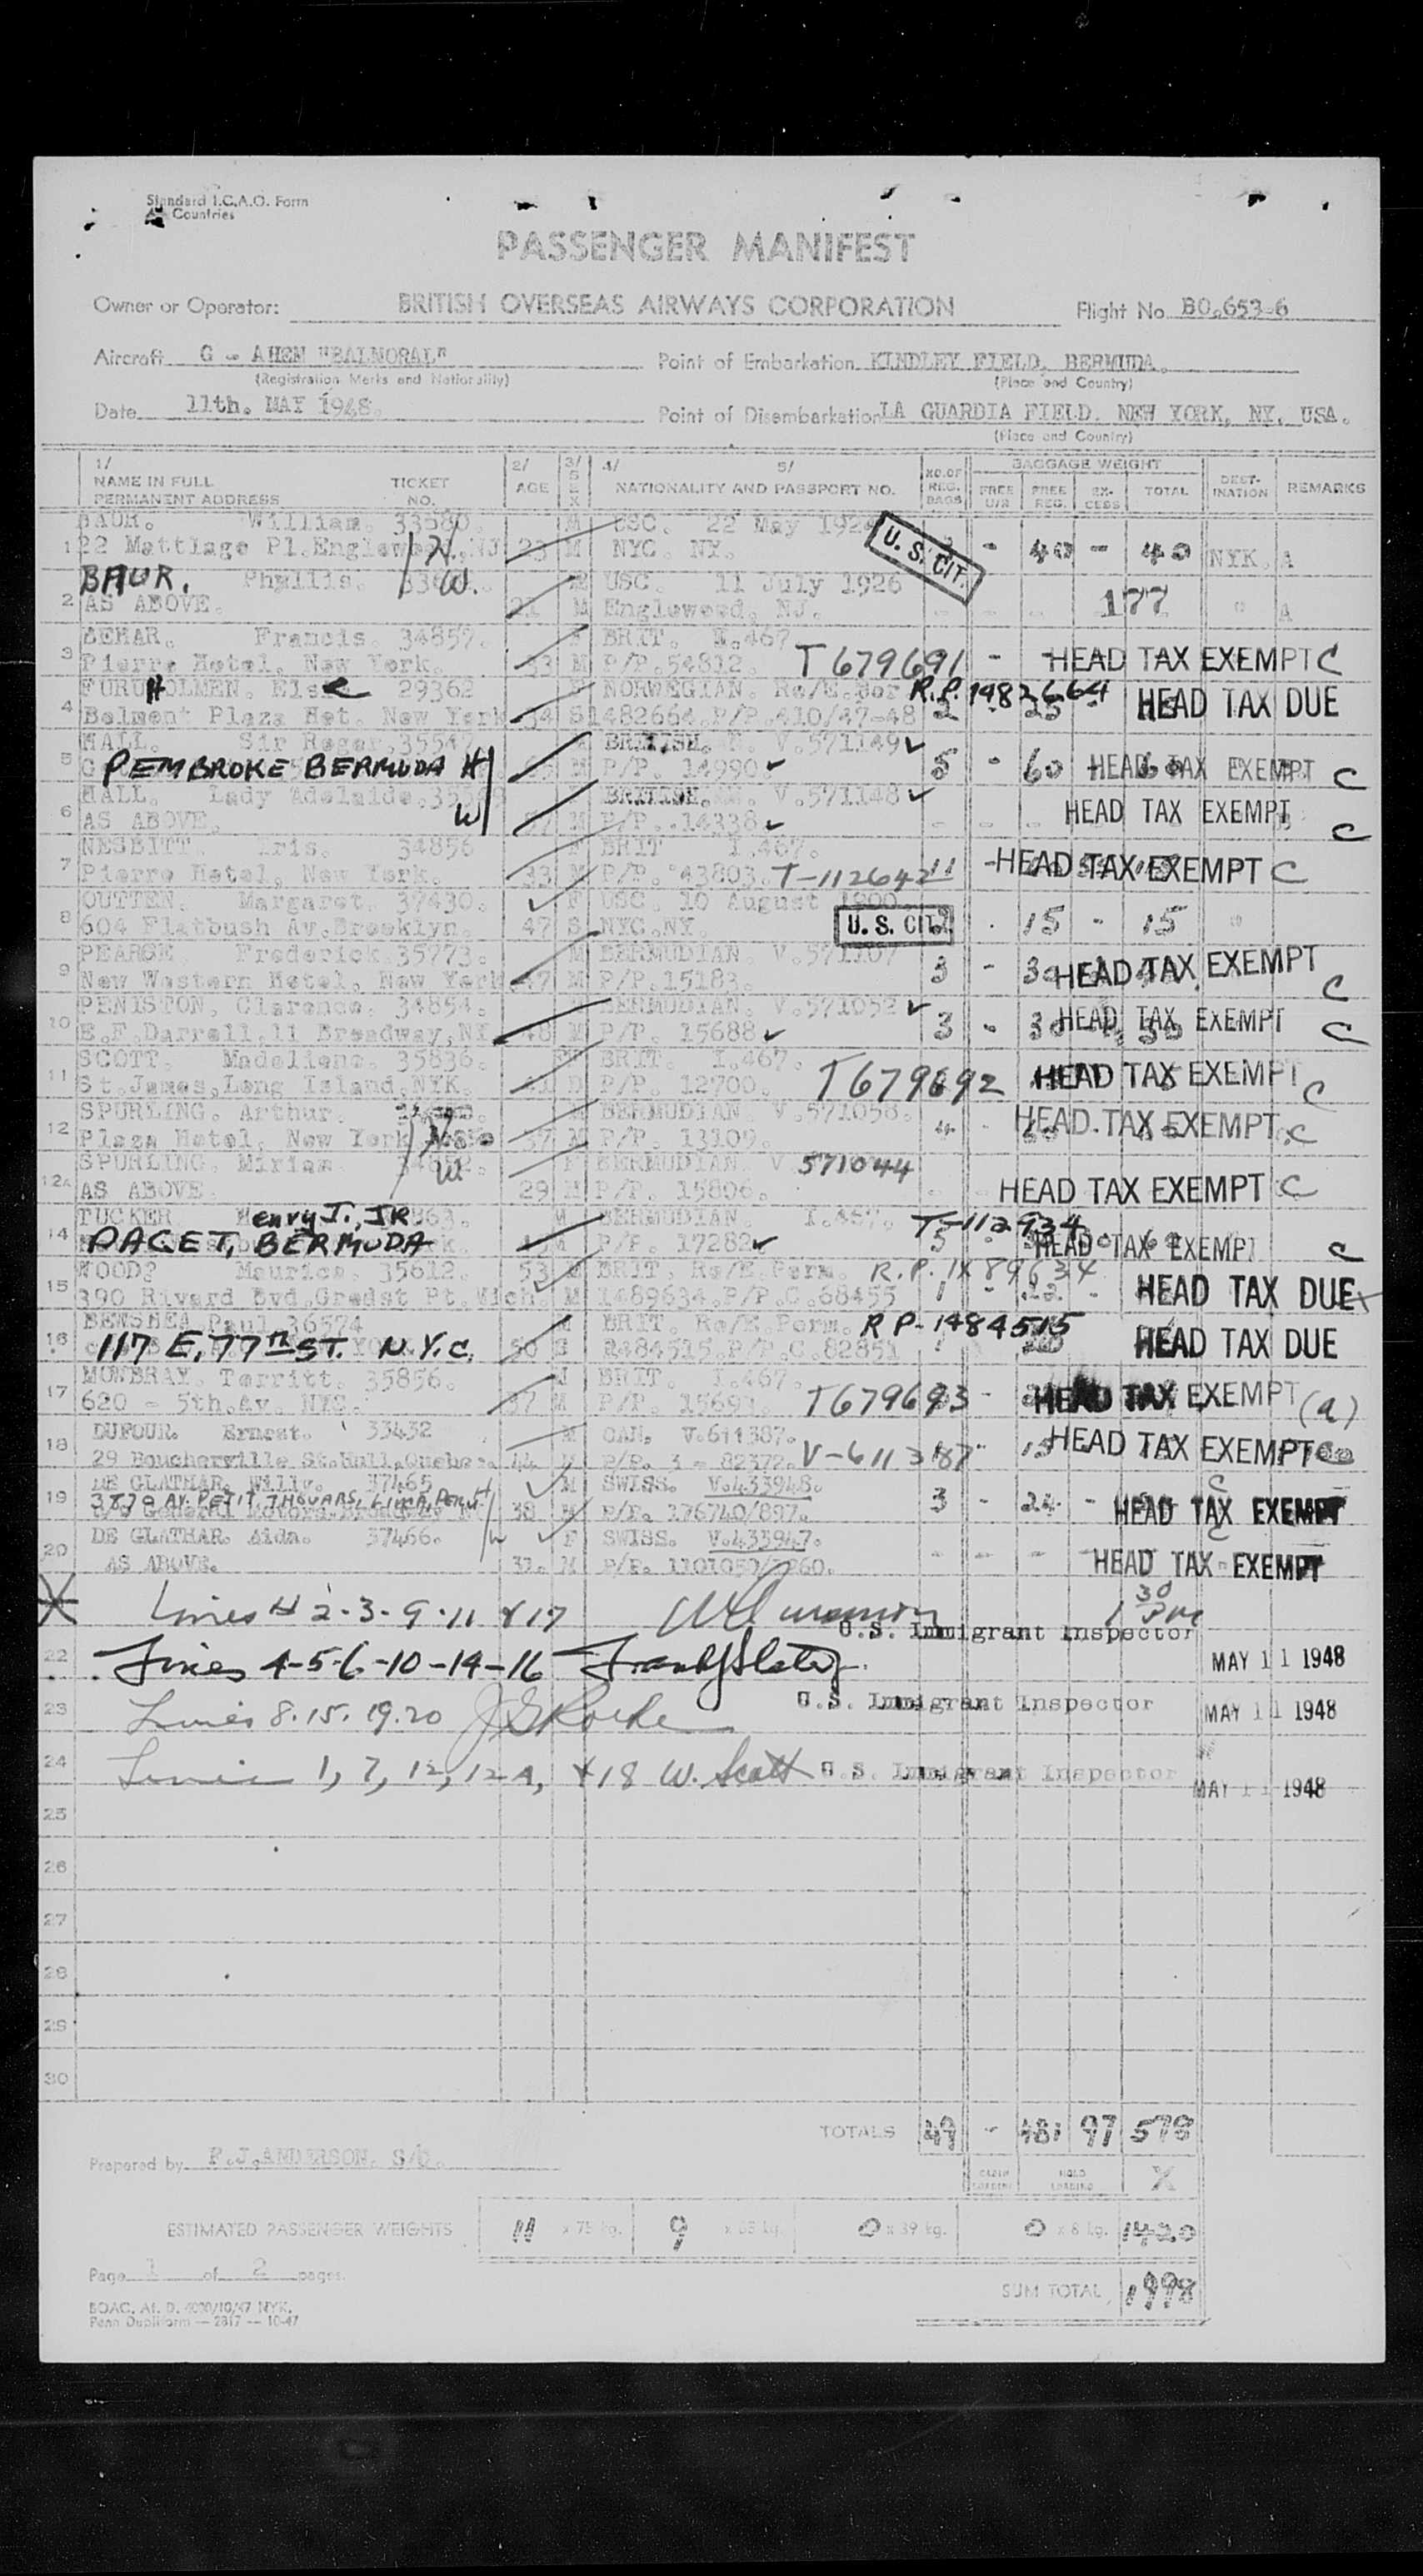 Standard I.C.A.O. Form
All Countries
PASSENGER MANIFEST
Owner or Operator: BRITISH OVERSEAS AIRWAYS CORPORATION Flight No. BO.653-6
Aircraft G - AHEM "BALMORAL" Point of Embarkation KINDLEY FIELD, BERMUDA.
(Registration Marks and Nationality) (Place and Country)
Date 11th. MAY 1948. Point of Disembarkation LA GUARDIA FIELD. NEW YORK, NY. USA.
(Place and Country)
1/ 2/ 3/ 4/ 5/ NO. OF BAGGAGE WEIGHT
NAME IN FULL TICKET AGE SEX NATIONALITY AND PASSPORT NO. REG. BAGS FREE U/R FREE REG. EX-CESS TOTAL DEST-INATION REMARKS
PERMANENT ADDRESS NO.
BAUR. William. 33580. M USC. 22 May 192
1 22 Mattlage Pl. Englewood, NJ H 23 M NYC. NY. U.S. CIT. - 40 - 40 NYK. A
BAUR. Phyllis. W. USC. 11 July 1926
2 AS ABOVE. 21 M Englewood, NJ. 177 " A
BEHAR. Francis. 34857. BRIT. I.467.
3 Pierre Hotel, New York. 33 M P/P.54812. T679691 - HEAD TAX EXEMPT C
FURUHOLMEN. Else 29362 F NORWEGIAN. Re/E.Per R.P.1482664
4 Belmont Plaza Hot. New York 34 S 1482664.P/P.410/47-48 2 - 25 - HEAD TAX DUE
HALL. Sir Roger. 35547 BRITISH. V.571149
5 PEMBROKE BERMUDA H M P/P. 14990 5 - 60 HEAD TAX EXEMPT C
HALL. Lady Adelaide. BRITISH. V.571148
6 AS ABOVE. W M P/P. 14338 HEAD TAX EXEMPT C
NESBITT. Iris. 34856 F BRIT I.467.
7 Pierre Hotel, New York. 33 M P/P. 43803. T-112642 - HEAD TAX EXEMPT C
OUTTEN. Margaret. 37430. F USC. 10 August 1900
8 604 Flatbush Av. Brooklyn 47 S NYC.NY. U.S. CIT. 15 - 15 "
PEARCE Frederick 35773. M BERMUDIAN. V.571107
9 New Western Hotel, New York 47 M P/P.15183. 3 - HEAD TAX EXEMPT C
PENISTON, Clarence. 34854. BERMUDIAN. V.571052
10 E.F.Darrell, 11 Broadway, NY 48 M P/P. 15688 3 - HEAD TAX EXEMPT C
SCOTT. Madeliene. 35836. F BRIT. I.467.
11 St.James, Long Island, NYK. D P/P. 12700. T679692 HEAD TAX EXEMPT C
SPURLING. Arthur. BERMUDIAN V.571058.
12 Plaza Hotel, New York H 37 M P/P. 13109. 4 - HEAD TAX EXEMPT. C
SPURLING. Miriam. W F BERMUDIAN V 571044
12A AS ABOVE. 29 M P/P. 15806. HEAD TAX EXEMPT C
TUCKER Henry J., JR M BERMUDIAN. I.467. T-112934
14 PAGET, BERMUDA P/P. 17282 5 HEAD TAX EXEMPT C
WOOD? Maurice. 35612. 53 M BRIT. Re/E.Perm. R.P. 1489634
15 390 Rivard Bvd.Grodst Pt.Mich. M 1489634.P/P.C.68455 1 - HEAD TAX DUE
BENSHEA Paul 36574 BRIT. Re/E.Perm. RP-1484515
16 117 E. 77TH ST. N.Y.C. 50 S P/P.C.82851 HEAD TAX DUE
MOWBRAY. Territt. 35856. BRIT. I.467.
17 620 - 5th.Av. NYC. 37 M T679693 - HEAD TAX EXEMPT (a)
DUFOUR. Ernest. 33432 M CAN. V.611387.
18 29 Boucherville St.Hull, Quebec. 44 P/P. 3 - 82372. V-611387 15 HEAD TAX EXEMPT
DE GLATHAR. Willy. 37465 M SWISS. V.433948.
19 3829 AV. PETIT THOUARS, LIMA, PERU H 38 M P/P. 176740/897. 3 - 24 - HEAD TAX EXEMPT C
DE GLATHAR. Aida. 37466. W F SWISS. V.433947.
20 AS ABOVE. 31. M HEAD TAX EXEMPT C
Lines # 2-3-9-11 & 17 U.S. Immigrant Inspector 1 30 PM
22 Lines 4-5-6-10-14-16 Frank J Slater U.S. Immigrant Inspector MAY 11 1948
23 Lines 8.15.19.20 U.S. Immigrant Inspector MAY 11 1948
24 Lines 1, 7, 12, 12A, & 18 W. Scott U.S. Immigrant Inspector MAY 11 1948
25
26
27
28
29
30
TOTALS 49 - 481 97 578
Prepared by F.J.ANDERSON. S/O. CABIN LOADING HOLD LOADING X
ESTIMATED PASSENGER WEIGHTS 11 x 75 kg. 9 x 65 kg. 0 x 39 kg. 0 x 8 kg. 1420
Page 1 of 2 pages.
SUM TOTAL 1998
BOAC. At. D. 4000/10/47 NYK.
Penn Dupliform — 2817 — 10-47